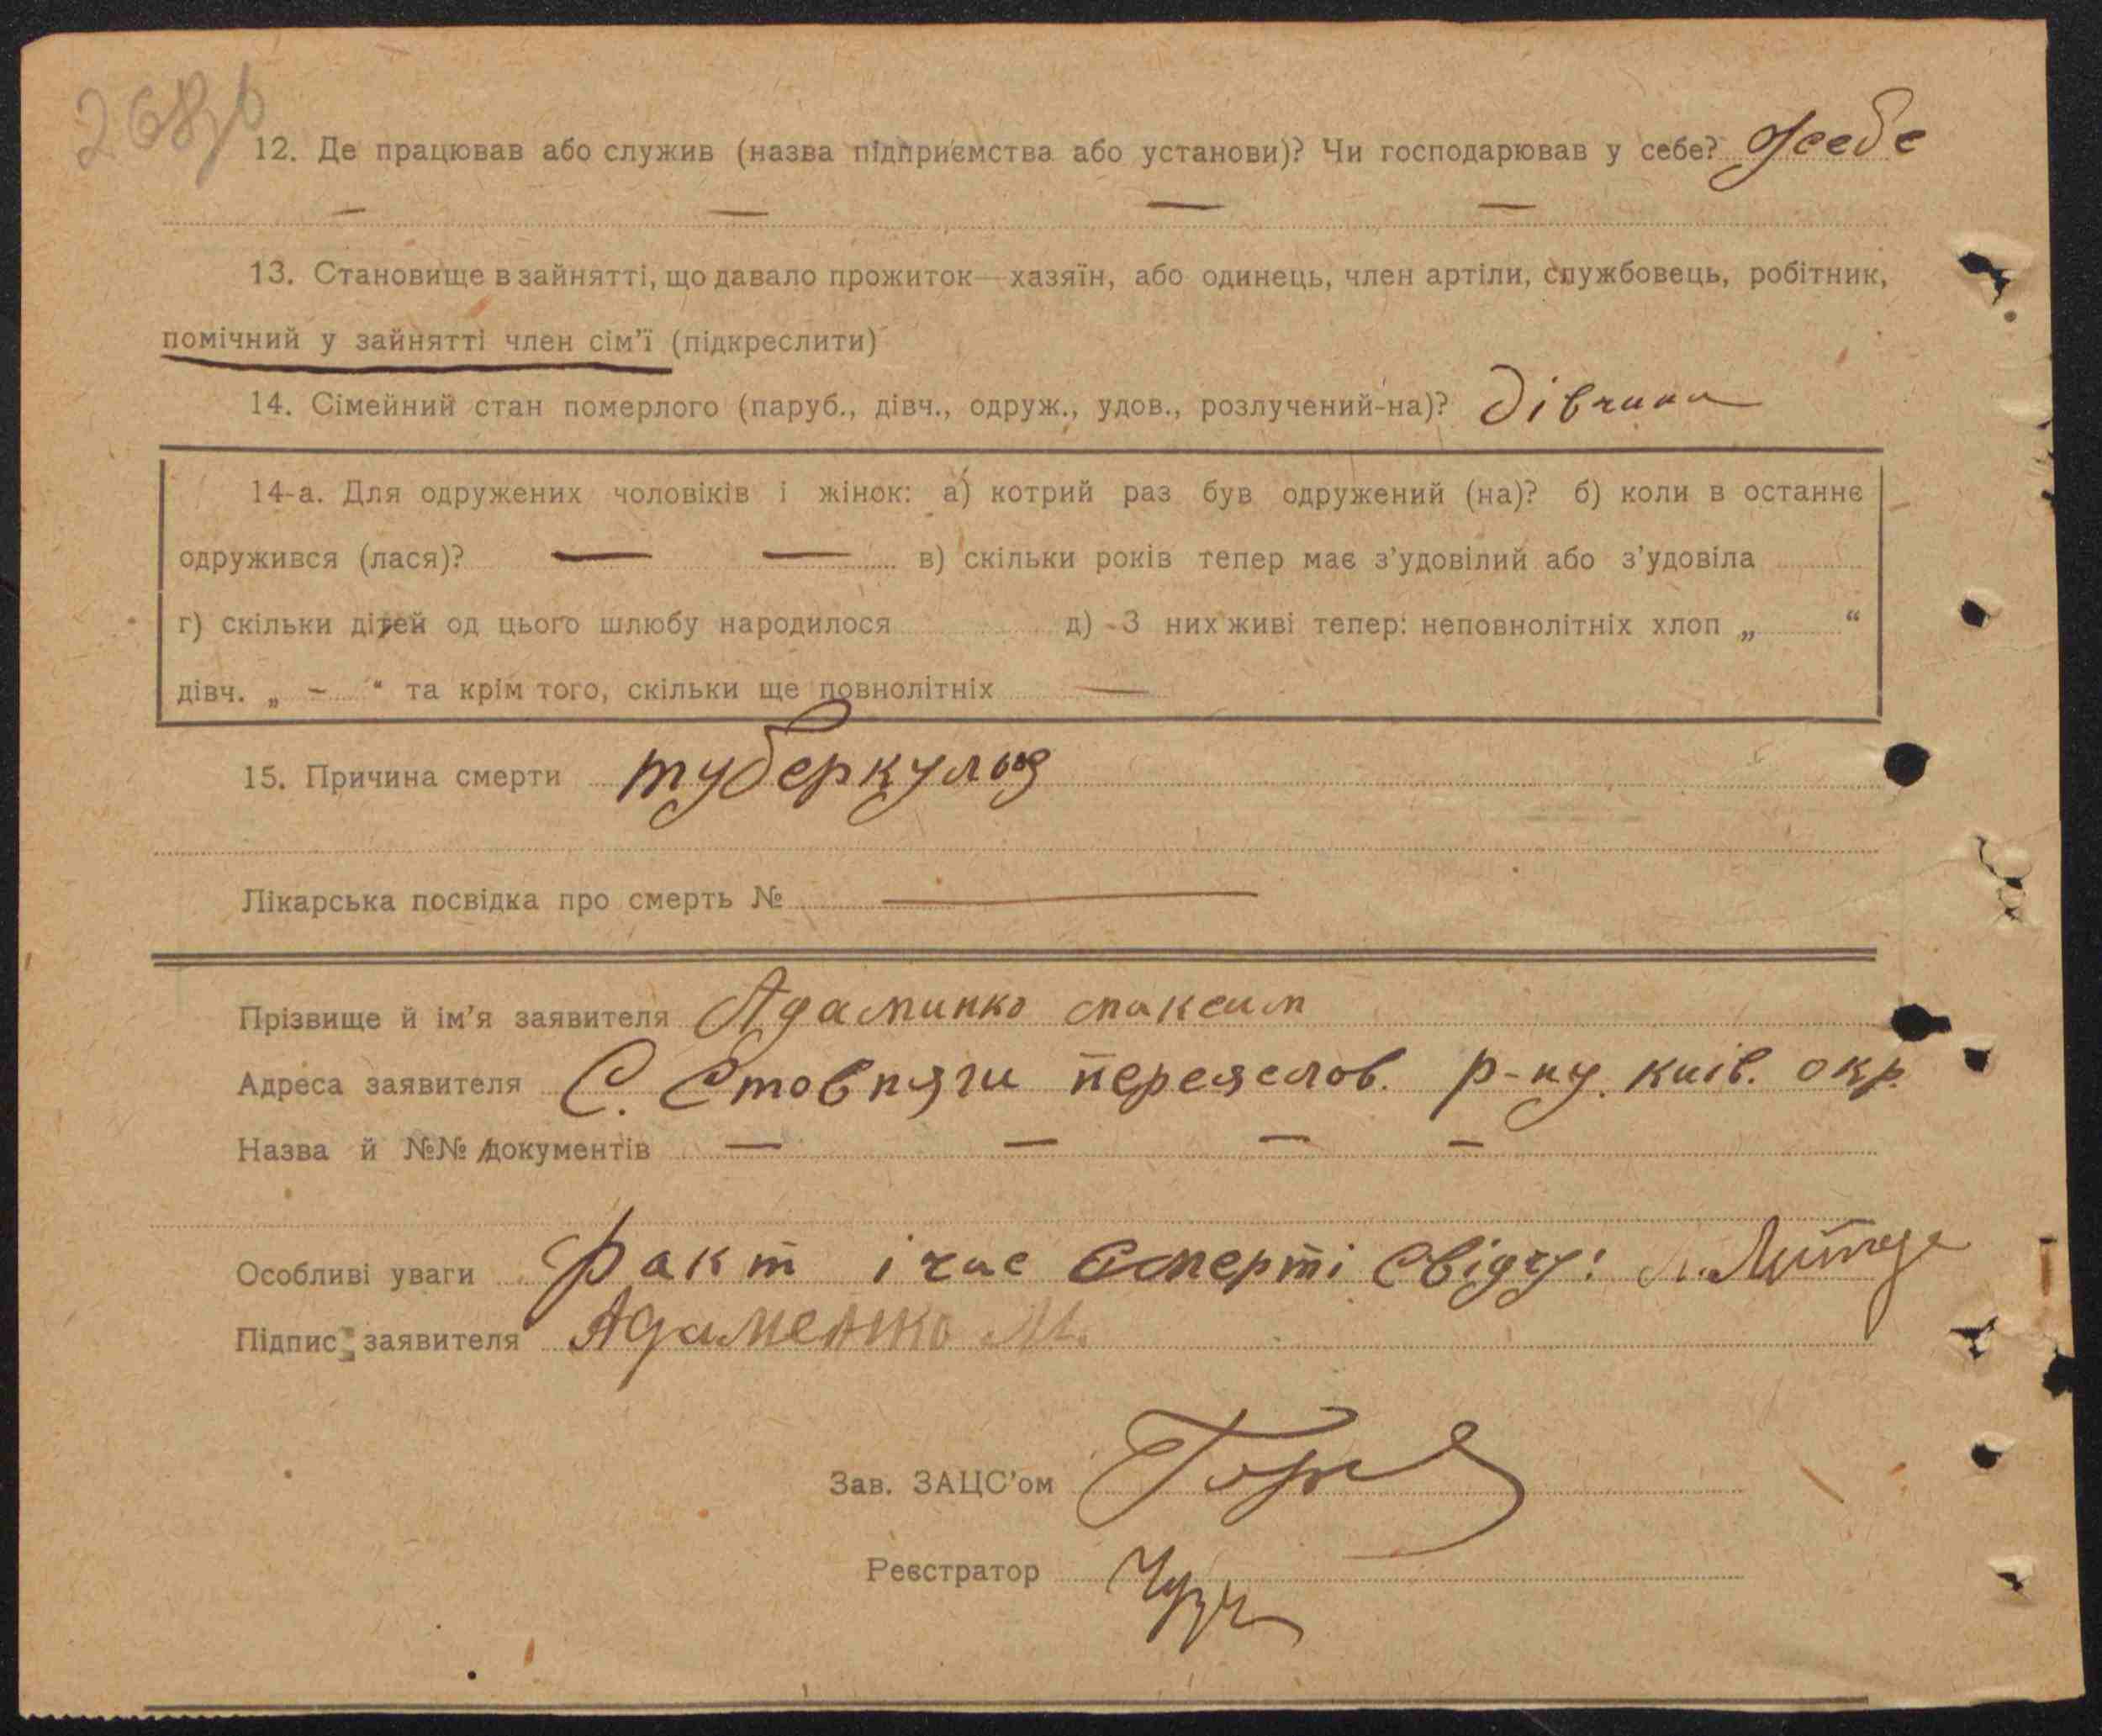 268
12. Де працював або служив (назва підприємства або установи)? Чи господарював у себе? У себе
— — — —
13. Становище в зайнятті, що давало прожиток—хазяїн, або одинець, член артіли, службовець, робітник,
помічний у зайнятті член сім'ї (підкреслити)
14. Сімейний стан померлого (паруб., дівч., одруж., удов., розлучений-на)? Дівчина
14-а. Для одружених чоловіків і жінок: а) котрий раз був одружений (на)? б) коли в останнє
одружився (лася)? — — в) скільки років тепер має з'удовілий або з'удовіла
г) скільки дітей од цього шлюбу народилося д) З них живі тепер: неповнолітніх хлоп „ “
дівч. „ - “ та крім того, скільки ще повнолітніх —
15. Причина смерти туберкульоз
Лікарська посвідка про смерть № —
Прізвище й ім'я заявителя Адаминко Максим
Адреса заявителя С. Стовпяги переяслов. р-ну київ. окр.
Назва й №№ документів — — — —
Особливі уваги Факт і час смерті свідчу:
Підпис заявителя Адаменко М.
Зав. ЗАЦС'ом
Реєстратор